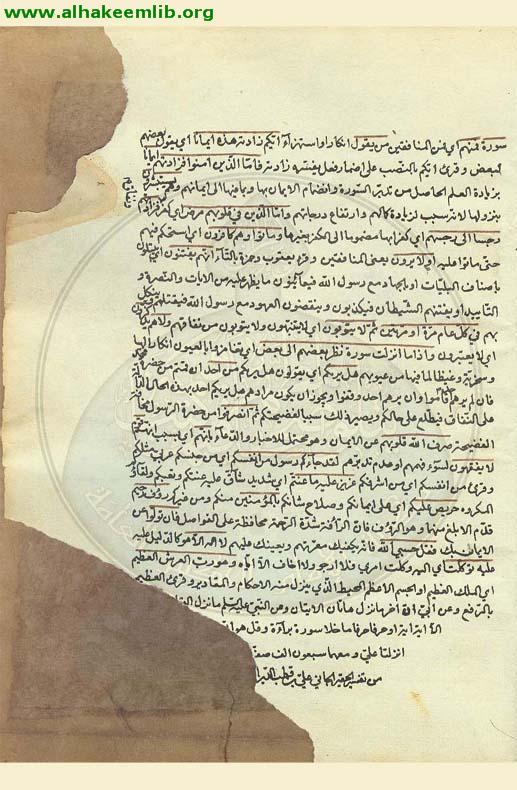 www.alhakeemlib.org
سورة فمنهم اي فمن المنافقين من يقول انكارا واستهزاء ايكم زادته هذه ايمانا اي يقول بعضهم
لبعض وقرئ ايكم بالنصب على اضمار فعل يفسره زادته فاما الذين امنوا فزادتهم ايمانا
بزيادة العلم الحاصل من تدبر السورة وانضمام الايمان بها وبما فيها الى ايمانهم وهم يستبشرون
بنزولها لانه سبب لزيادة كمالهم وارتفاع درجاتهم واما الذين في قلوبهم مرض اي كفر فزادتهم
رجسا الى رجسهم اي كفرا بها مضموما الى الكفر بغيرها وماتوا وهم كافرون اي استحكم فيهم
حتى ماتوا عليه اولا يرون يعني المنافقين وقرء يعقوب وحمزة بالتاء انهم يفتنون اي يبتلون
باصناف البليات او بالجهاد مع رسول الله فيعاينون ما يظهر عليه من الايات والنصرة و
التاييد او يفتنهم الشيطان فيكذبون وينقضون العهود مع رسول الله فيقتلهم وينكل
بهم في كل عام مرة او مرتين ثم لا يتوبون اي لا ينتهون ولا يتوبون من نفاقهم ولا هم يذكرون
اي لا يعتبرون واذا ما انزلت سورة نظر بعضهم الى بعض اي تغامزوا بالعيون انكارا لها
وسخرية وغيظا لما فيها من عيوبهم هل يريكم اي يقولون هل يريكم من احد ان قمتم من حضرة
فان لم يرهم احد قاموا وان يرهم احد وقفوا ويجوز ان يكون مرادهم هل يريكم احد بهذه الحال
على النفاق فيطلع على حالكم ويصير ذلك سببا لفضيحتكم ثم انصرفوا من حضرة الرسول مخافة
الفضيحة صرف الله قلوبهم عن الايمان وهو محتمل للاخبار والدعاء بانهم اي بسبب انهم قوم
لا يفقهون لسوء فهمهم او عدم تدبرهم لقد جاءكم رسول من انفسكم اي من جنسكم عربي مثلكم
وقرئ من انفسكم اي من اشرفكم عزيز عليه ما عنتم اي شديد شاق عليه عنتكم وتعبكم ولقاؤكم
المكروه حريص عليكم اي على ايمانكم وصلاح شانكم بالمؤمنين منكم ومن غيركم رؤف رحيم
قدم الابلغ منهما وهو الرؤف فان الرأفة شدة الرحمة محافظة على الفواصل فان تولوا عن
الايمان بك فقل حسبي الله فانه يكفيك معرتهم ويعينك عليهم لا اله الا هو كالدليل عليه
عليه توكلت اي اليه وكلت امري فلا ارجو ولا اخاف الا اياه وهو رب العرش العظيم
اي الملك العظيم او الجسم الاعظم المحيط الذي ينزل منه الاحكام والمقادير وقرئ العظيم
بالرفع وعن ابي ان اخر ما نزل هاتان الايتان وعن النبي عليه السلام ما نزل
الا اية اية وحرفا حرفا ما خلا سورة براءة وقل هو
انزلتا علي ومعهما سبعون الف صف
من تفسير الحقير الجاني علي بن قطب الدين